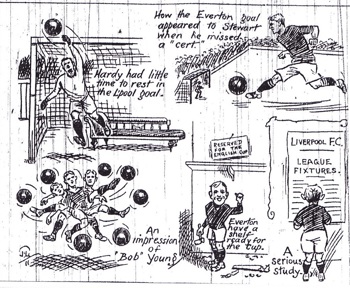 How the Everton goal
appeared to Stewart
when he missed
a "cert."
Hardy had little
time to rest in
the L'pool goal.
RESERVED
FOR THE
ENGLISH CUP
LIVERPOOL F.C.
LEAGUE
FIXTURES.
An
impression
of
"Bob" Young.
Everton
have a
shelf
ready for
the Cup.
A
serious
study.